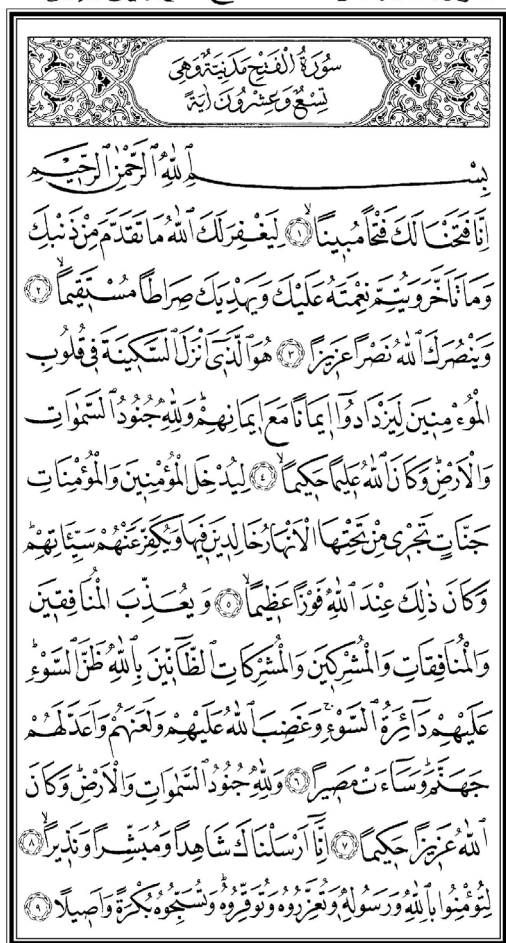 سُورَةُ الْفَتْحِ مَدَنِيَّةٌ وَهِيَ
تِسْعٌ وَعِشْرُونَ اٰيَةً
بِسْــــــــــــمِ اللّٰهِ الرَّحْمٰنِ الرَّحٖيمِ
اِنَّا فَتَحْنَا لَكَ فَتْحًا مُبٖينًاۙ ﴿١﴾ لِيَغْفِرَ لَكَ اللّٰهُ مَا تَقَدَّمَ مِنْ ذَنْبِكَ
وَمَا تَاَخَّرَ وَيُتِمَّ نِعْمَتَهُ عَلَيْكَ وَيَهْدِيَكَ صِرَاطًا مُسْتَقٖيمًاۙ ﴿٢﴾
وَيَنْصُرَكَ اللّٰهُ نَصْرًا عَزٖيزًا ﴿٣﴾ هُوَ الَّذٖٓي اَنْزَلَ السَّكٖينَةَ فٖي قُلُوبِ
الْمُؤْمِنٖينَ لِيَزْدَادُٓوا اٖيمَانًا مَعَ اٖيمَانِهِمْؕ وَلِلّٰهِ جُنُودُ السَّمٰوَاتِ
وَالْاَرْضِؕ وَكَانَ اللّٰهُ عَلٖيمًا حَكٖيمًاۙ ﴿٤﴾ لِيُدْخِلَ الْمُؤْمِنٖينَ وَالْمُؤْمِنَاتِ
جَنَّاتٍ تَجْرٖي مِنْ تَحْتِهَا الْاَنْهَارُ خَالِدٖينَ فٖيهَا وَيُكَفِّرَ عَنْهُمْ سَيِّـَٔاتِهِمْؕ
وَكَانَ ذٰلِكَ عِنْدَ اللّٰهِ فَوْزًا عَظٖيمًاۙ ﴿٥﴾ وَيُعَذِّبَ الْمُنَافِقٖينَ
وَالْمُنَافِقَاتِ وَالْمُشْرِكٖينَ وَالْمُشْرِكَاتِ الظَّٓانّٖينَ بِاللّٰهِ ظَنَّ السَّوْءِؕ
عَلَيْهِمْ دَٓائِرَةُ السَّوْءِۚ وَغَضِبَ اللّٰهُ عَلَيْهِمْ وَلَعَنَهُمْ وَاَعَدَّ لَهُمْ
جَهَنَّمَؕ وَسَٓاءَتْ مَصٖيرًا ﴿٦﴾ وَلِلّٰهِ جُنُودُ السَّمٰوَاتِ وَالْاَرْضِؕ وَكَانَ
اللّٰهُ عَزٖيزًا حَكٖيمًا ﴿٧﴾ اِنَّٓا اَرْسَلْنَاكَ شَاهِدًا وَمُبَشِّرًا وَنَذٖيرًاۙ ﴿٨﴾
لِتُؤْمِنُوا بِاللّٰهِ وَرَسُولِهٖ وَتُعَزِّرُوهُ وَتُوَقِّرُوهُؕ وَتُسَبِّحُوهُ بُكْرَةً وَاَصٖيلًا ﴿٩﴾